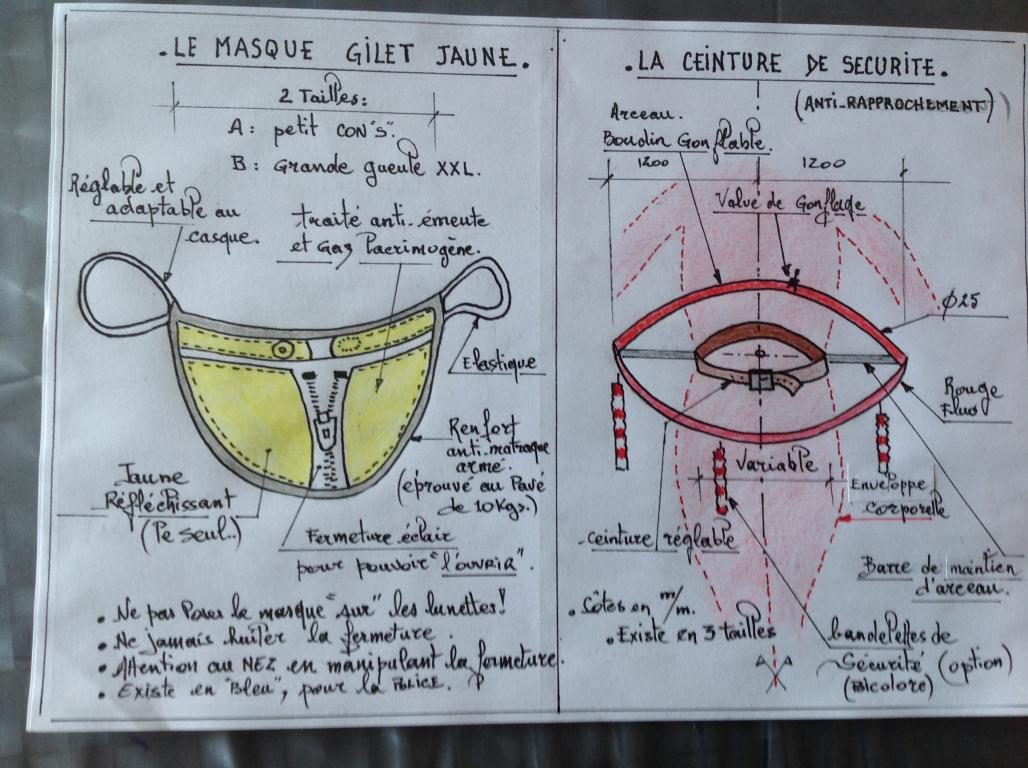 . LE MASQUE GILET JAUNE.
2 Tailles:
A: petit CON "S".
B: Grande gueule XXL.
Réglable et
adaptable au
casque.
traité anti-émeute
et Gaz Lacrimogène.
Elastique
Renfort
anti-matraque
armé.
(éprouvé au Pavé
de 10Kgs.)
Jaune
Réfléchissant
(Le seul..)
Fermeture éclair
pour pouvoir "l'ouvrir".
• Ne pas Poser le masque "sur" les lunettes!
• Ne jamais huiler la fermeture.
• Attention au NEZ en manipulant la fermeture.
• Existe en "Bleu", pour la POLICE.
. LA CEINTURE DE SECURITE.
(ANTI-RAPPROCHEMENT)
Arceau.
Boudin Gonflable.
1200
1200
Valve de Gonflage
Ø25
Rouge
Fluo
Variable
Enveloppe
corporelle
ceinture réglable
Barre de maintien
d'arceau.
• Côtes en m/m.
• Existe en 3 tailles
bandelettes de
Sécurité (option)
(Bicolore)